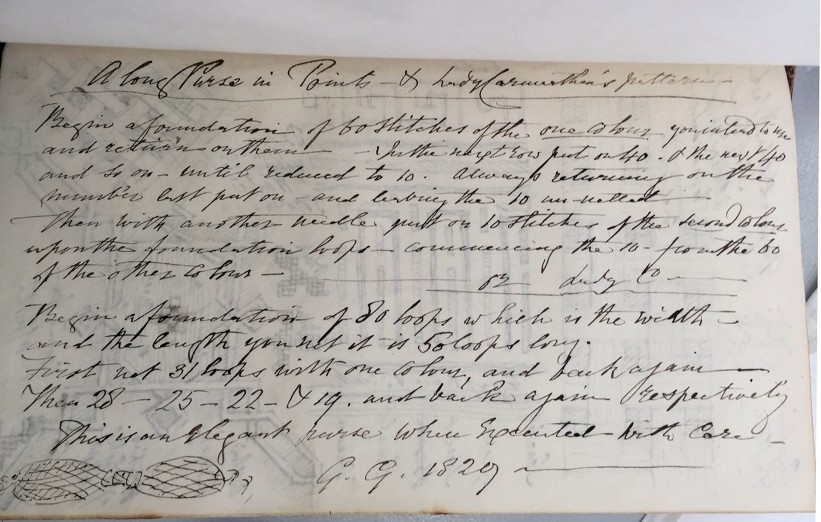 A long Purse in Points - & Lady Carmarthen's pattern -
Begin a foundation of 60 Stitches of the one Colour you intend to use
and return on them - In the next row put on 40. & the next 40
and so on - until reduced to 10. Always returning on the
number last put on and leaving the 10 un-netted
Then with another needle put on 10 Stitches of the second Colour
upon the foundation loops - commencing the 10 - from the 60
of the other Colour -
or Lady C -
Begin a foundation of 80 loops which is the width -
and the length you net it is 50 loops long.
First net 31 loops with one Colour, and back again
Then 28 - 25 - 22 - & 19. and back again respectively
This is an Elegant purse when Executed with Care -
G. G. 1829